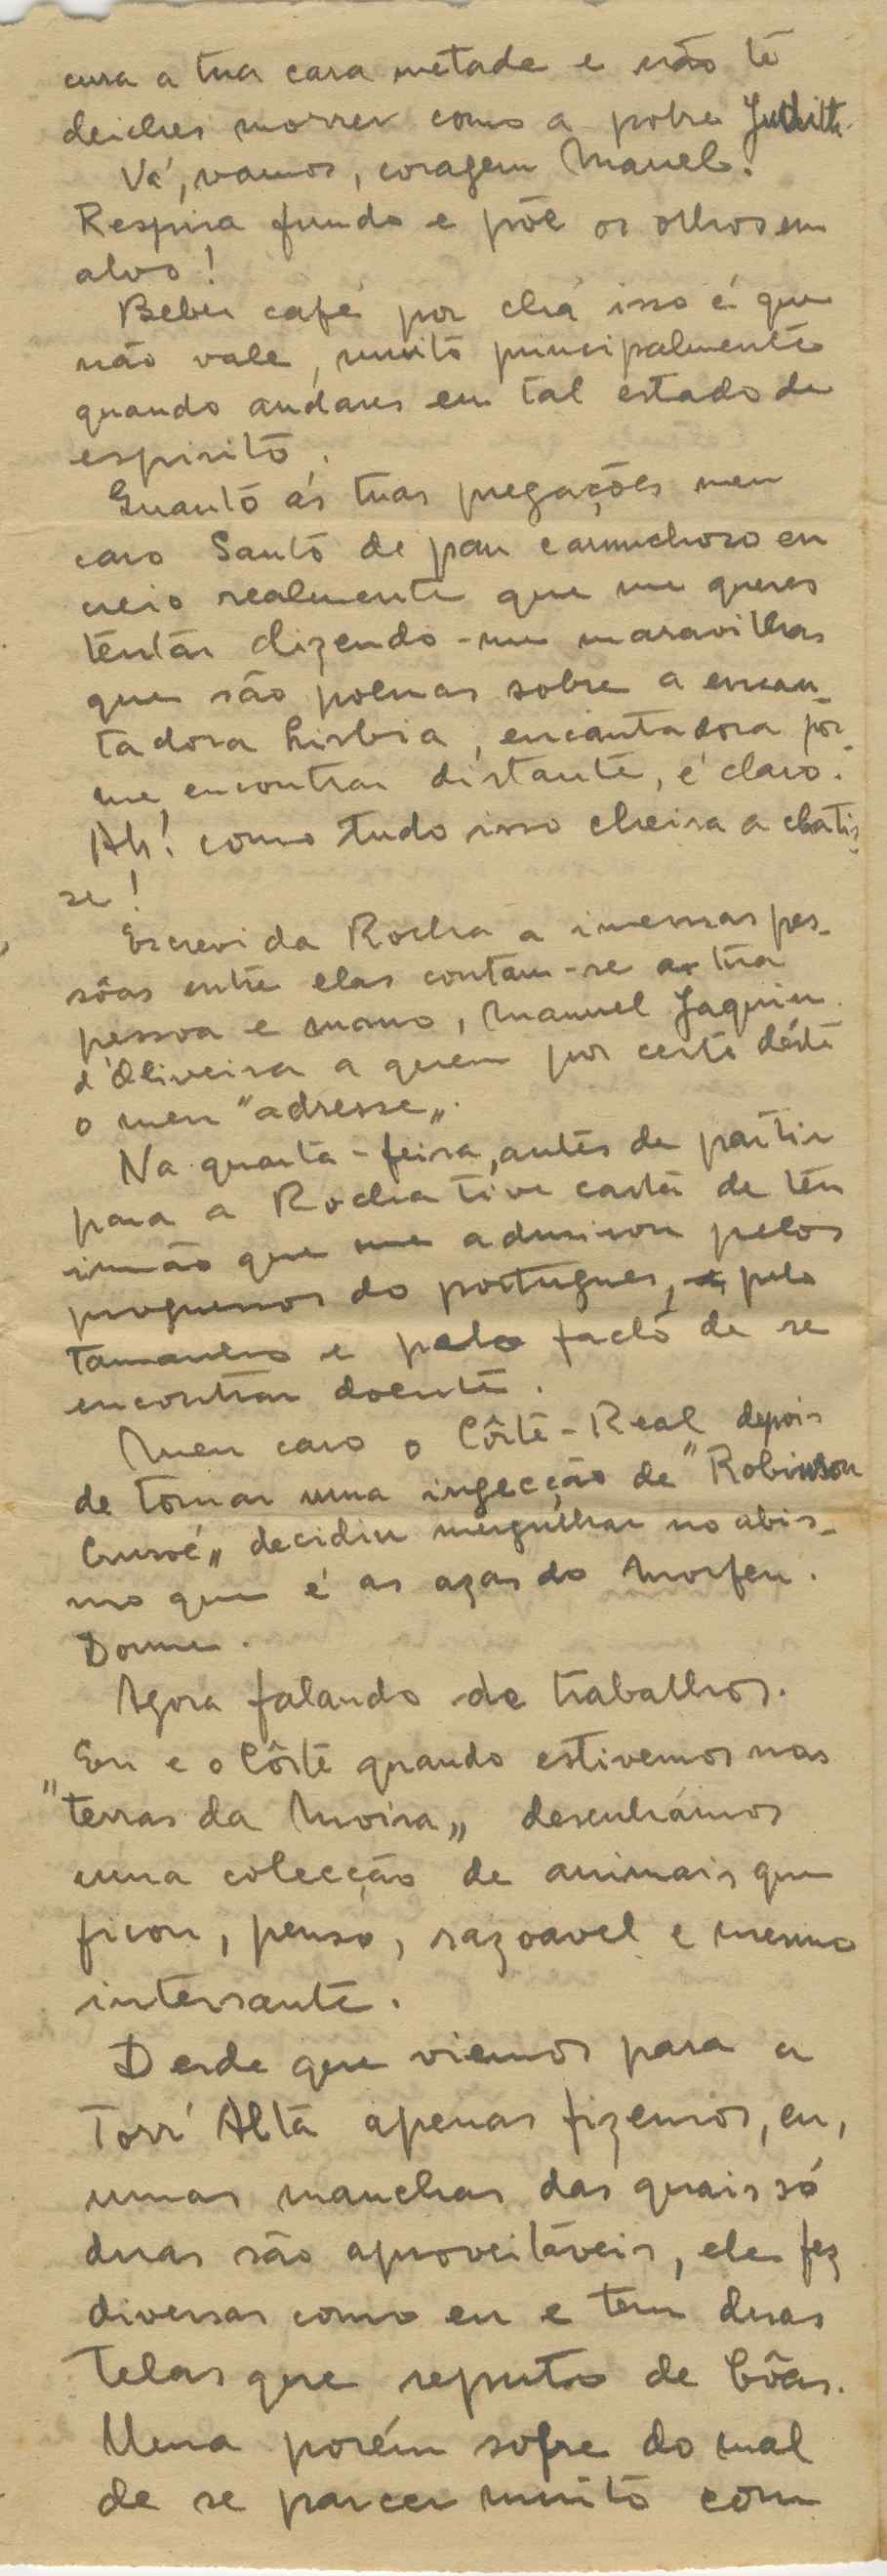 cura a tua cara metade e não te
deiches morrer como a pobre Judith.
Vá, vamos, coragem Manel!
Respira fundo e põe os olhos em
alvo!
Beber café por chá isso é que
não vale, muito principalmente
quando andares em tal estado de
espirito.
Quanto ás tuas pregações meu
caro Santo de pau carunchoso eu
creio realmente que me queres
tentar dizendo-me maravilhas
que são poemas sobre a encan-
tadora Lisbia, encantadora por
me encontrar distante, é claro.
Ah! como tudo isso cheira a chati-
se!
Escrevi da Rocha a imensas pes-
sôas entre elas contam-se a tua
pessoa e mano, Manuel Jaquim
d'Oliveira a quem por certo déste
o meu "adresse„.
Na quarta-feira, antes de partir
para a Rocha tive carta de teu
irmão que me admirou pelos
progressos do portugues, pelo
tamanho e pelo facto de se
encontrar doente.
Meu caro o Côrte-Real depois
de tomar uma ingecção de "Robinson
Crusoé„ decidiu mergulhar no abis-
mo que é as azas do Morfeu.
Dorme.
Agora falando de trabalhos.
Eu e o Côrte quando estivemos nas
"terras da Moira„ desenhámos
uma colecção de animais que
ficou, penso, razoavel e mesmo
intersante.
Desde que viemos para a
Torr' Alta apenas fizemos, eu,
umas manchas das quais só
duas são aproveitáveis, ele fez
diversas como eu e tem duas
telas que reputo de bôas.
Uma porém sofre do mal
de se parcer muito com